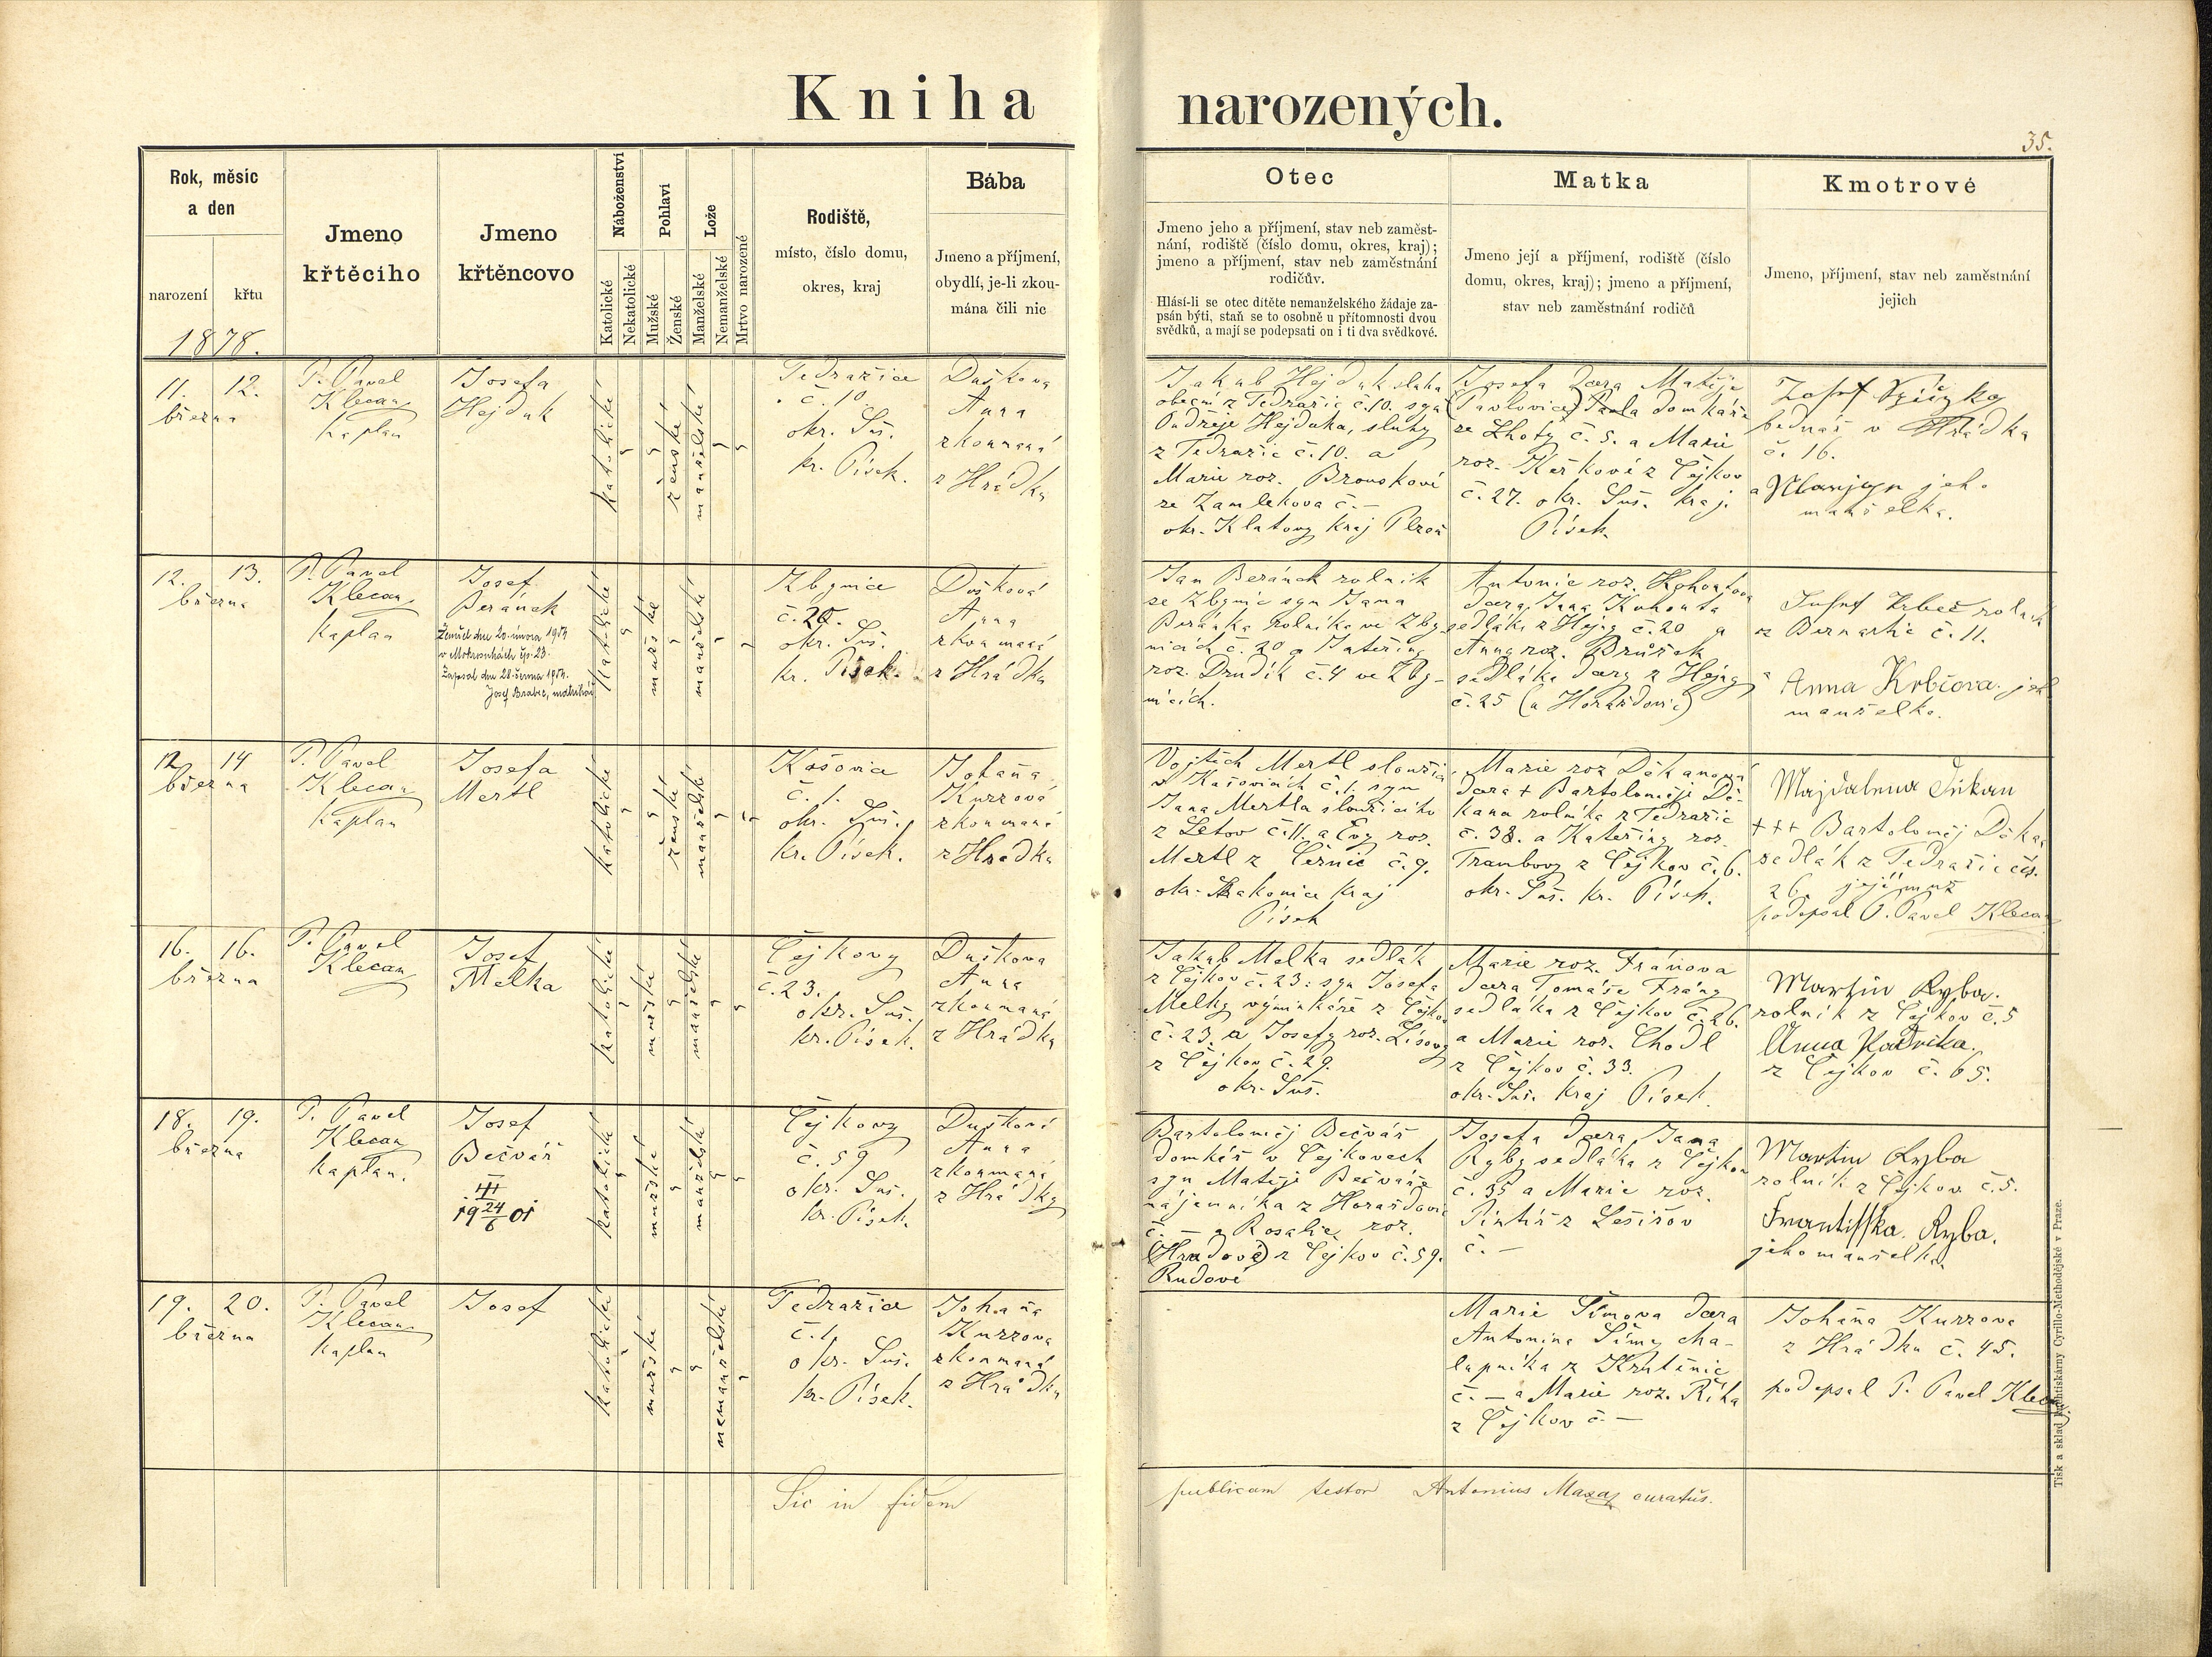 Kniha narozených.
35.
Rok, měsíc
a den
narození
křtu
1878.
Jmeno
křtěcího
Jmeno
křtěncovo
Náboženství
Katolické
Nekatolické
Pohlaví
Mužské
Ženské
Lože
Manželské
Nemanželské
Mrtvo narozené
Rodiště,
místo, číslo domu,
okres, kraj
Bába
Jmeno a příjmení,
obydlí, je-li zkou-
mána čili nic
Otec
Jmeno jeho a příjmení, stav neb zaměst-
nání, rodiště (číslo domu, okres, kraj);
jmeno a příjmení, stav neb zaměstnání
rodičův.
Hlásí-li se otec dítěte nemanželského žádaje za-
psán býti, staň se to osobně u přítomnosti dvou
svědků, a mají se podepsati on i ti dva svědkové.
Matka
Jmeno její a příjmení, rodiště (číslo
domu, okres, kraj); jmeno a příjmení,
stav neb zaměstnání rodičů
Kmotrové
Jmeno, příjmení, stav neb zaměstnání
jejich
11. 12.
března
P. Pavel
Klecan
kaplan
Josefa
Hejduk
katolické
ženské
manželské
Tedražice
č. 10.
okr. Suš.
kr. Písek.
Dušková
Anna
zkoumaná
z Hrádku
Jakub Hejduk sluha
obecní z Tedražic č. 10. syn
Ondřeje Hejduka, sluhy
z Tedražic č. 10. a
Marie roz. Brouskové
ze Zamlekova č. –
okr. Klatovy kraj Plzeň
Josefa dcera Matěje
(Pavlovice) Pavla domkáře
ze Lhoty č. 5. a Marie
roz. Keřkové z Čejkov
č. 27. okr. Suš. kraj.
Písek.
Josef
bednář v Hrádku
č. 16.
a jeho
manželka.
12. 13.
března
P. Pavel
Klecan
kaplan
Josef
Beránek
Zemřel dne 20. února 1954
v Mokrosukách čp. 23.
Zapsal dne 28. června 1954.
Josef Brabec, matrikář
katolické
mužské
manželské
Zbynice
č. 20.
okr. Suš.
kr. Písek.
Dušková
Anna
zkoumaná
z Hrádku
Jan Beránek rolník
ze Zbynic syn Jana
Beránka rolníka ve Zby-
nicích č. 20 a Kateřiny
roz. Drudík č. 4 ve Zby-
nicích.
Antonie roz. Kohoutova
dcera Jana Kohouta
sedláka z Hejny č. 20 a
Anna roz. Průšek
sedláka dcery z Hejny
č. 25 (u Horažďovic)
Josef rolník
z Bernartic č. 11.
Anna Krbčova. jeh
manželka.
12 14
března
P. Pavel
Klecan
kaplan
Josefa
Mertl
katolické
ženské
manželské
Kašovice
č. 1.
okr. Suš.
kr. Písek.
Johaňa
Kurzová
zkoumaná
z Hrádku
Vojtěch Mertl sloužící
v Kašovicích č. 1. syn
Jana Mertla sloužícího
z Letov č. 11. a Evy roz.
Mertl z Černíc č. 9.
okr. Strakonice kraj
Písek
Marie roz Děkanová
dcera + Bartoloměje Dě-
kana rolníka z Tedražic
č. 38. a Kateřiny roz.
Trambovy z Čejkov č. 6.
okr. Suš. kr. Písek.
Majdalena Děkan
+++ Bartoloměj Děkan
sedlák z Tedražic čís.
26. její muž
podepsal P. Pavel Klecan
16. 16.
března
P. Pavel
Klecan
Josef
Melka
katolické
mužské
manželské
Čejkovy
č. 23.
okr. Suš.
kr. Písek.
Dušková
Anna
zkoumaná
z Hrádku
Jakub Melka sedlák
z Čejkov č. 23. syn Josefa
Melky výminkáře z Čejkov
č. 23. a Josefy roz. Lísovy
z Čejkov č. 29.
okr. Suš.
Marie roz. Fránova
dcera Tomáše Frány
sedláka z Čejkov č. 26.
a Marie roz. Chodl
z Čejkov č. 33.
okr. Suš. kraj Písek.
Martin Ryba.
rolník z Čejkov č. 5
Anna
z Čejkov č. 65.
18. 19.
března
P. Pavel
Klecan
kaplan.
Josef
Bečvář
III
19 24/6 01
katolické
mužské
manželské
Čejkovy
č. 59
okr. Suš.
kr. Písek.
Dušková
Anna
zkoumaná
z Hrádky
Bartoloměj Bečvář
domkář v Čejkovech
syn Matěje Bečváře
nájemníka z Horažďovic
č. – a Rosalie roz.
(Hradové) z Čejkov č. 59.
Rudové
Josefa dcera Jana
Ryby sedláka z Čejkov
č. 35 a Marie roz.
Pintíř z Lešišov
č. –
Martin Ryba
rolník z Čejkov č. 5.
Frantisska Ryba.
jeho manželka
19. 20.
března
P. Pavel
Klecan
kaplan
Josef
katolické
mužské
nemanželské
Tedražice
č. 1.
okr. Suš.
kr. Písek.
Johaňa
Kurzova
zkoumaná
z Hrádku
Marie Šímova dcera
Antonína Šímy cha-
lupníka z Krutěnic
č. – a Marie roz. Říha
z Čejkov č. –
Johaňa Kurzova
z Hrádku č. 45.
podepsal P. Pavel Klecan
Sic in fidem publicam testor Antonius curatus.
Tisk a sklad knihtiskárny Cyrillo-Methodějské v Praze.